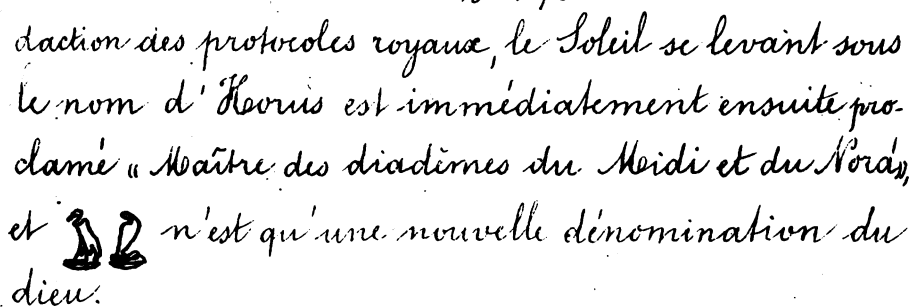 daction des protocoles royaux, le Soleil se levant sous
le nom d'Horus est immédiatement ensuite pro-
clamé « Maître des diadèmes du Midi et du Nord »,
et n'est qu'une nouvelle dénomination du
dieu.